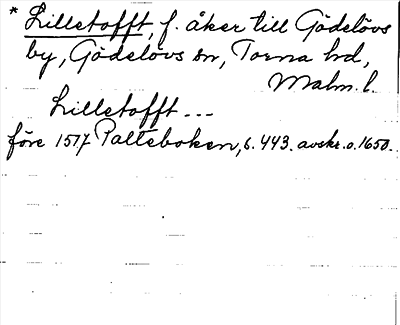 * Lilletofft, f. åker till Gödelövs
by, Gödelövs sn, Torna hd,
Malm. l.
Lilletofft ...
före 1517 Palteboken, s. 443. avskr. o. 1650.